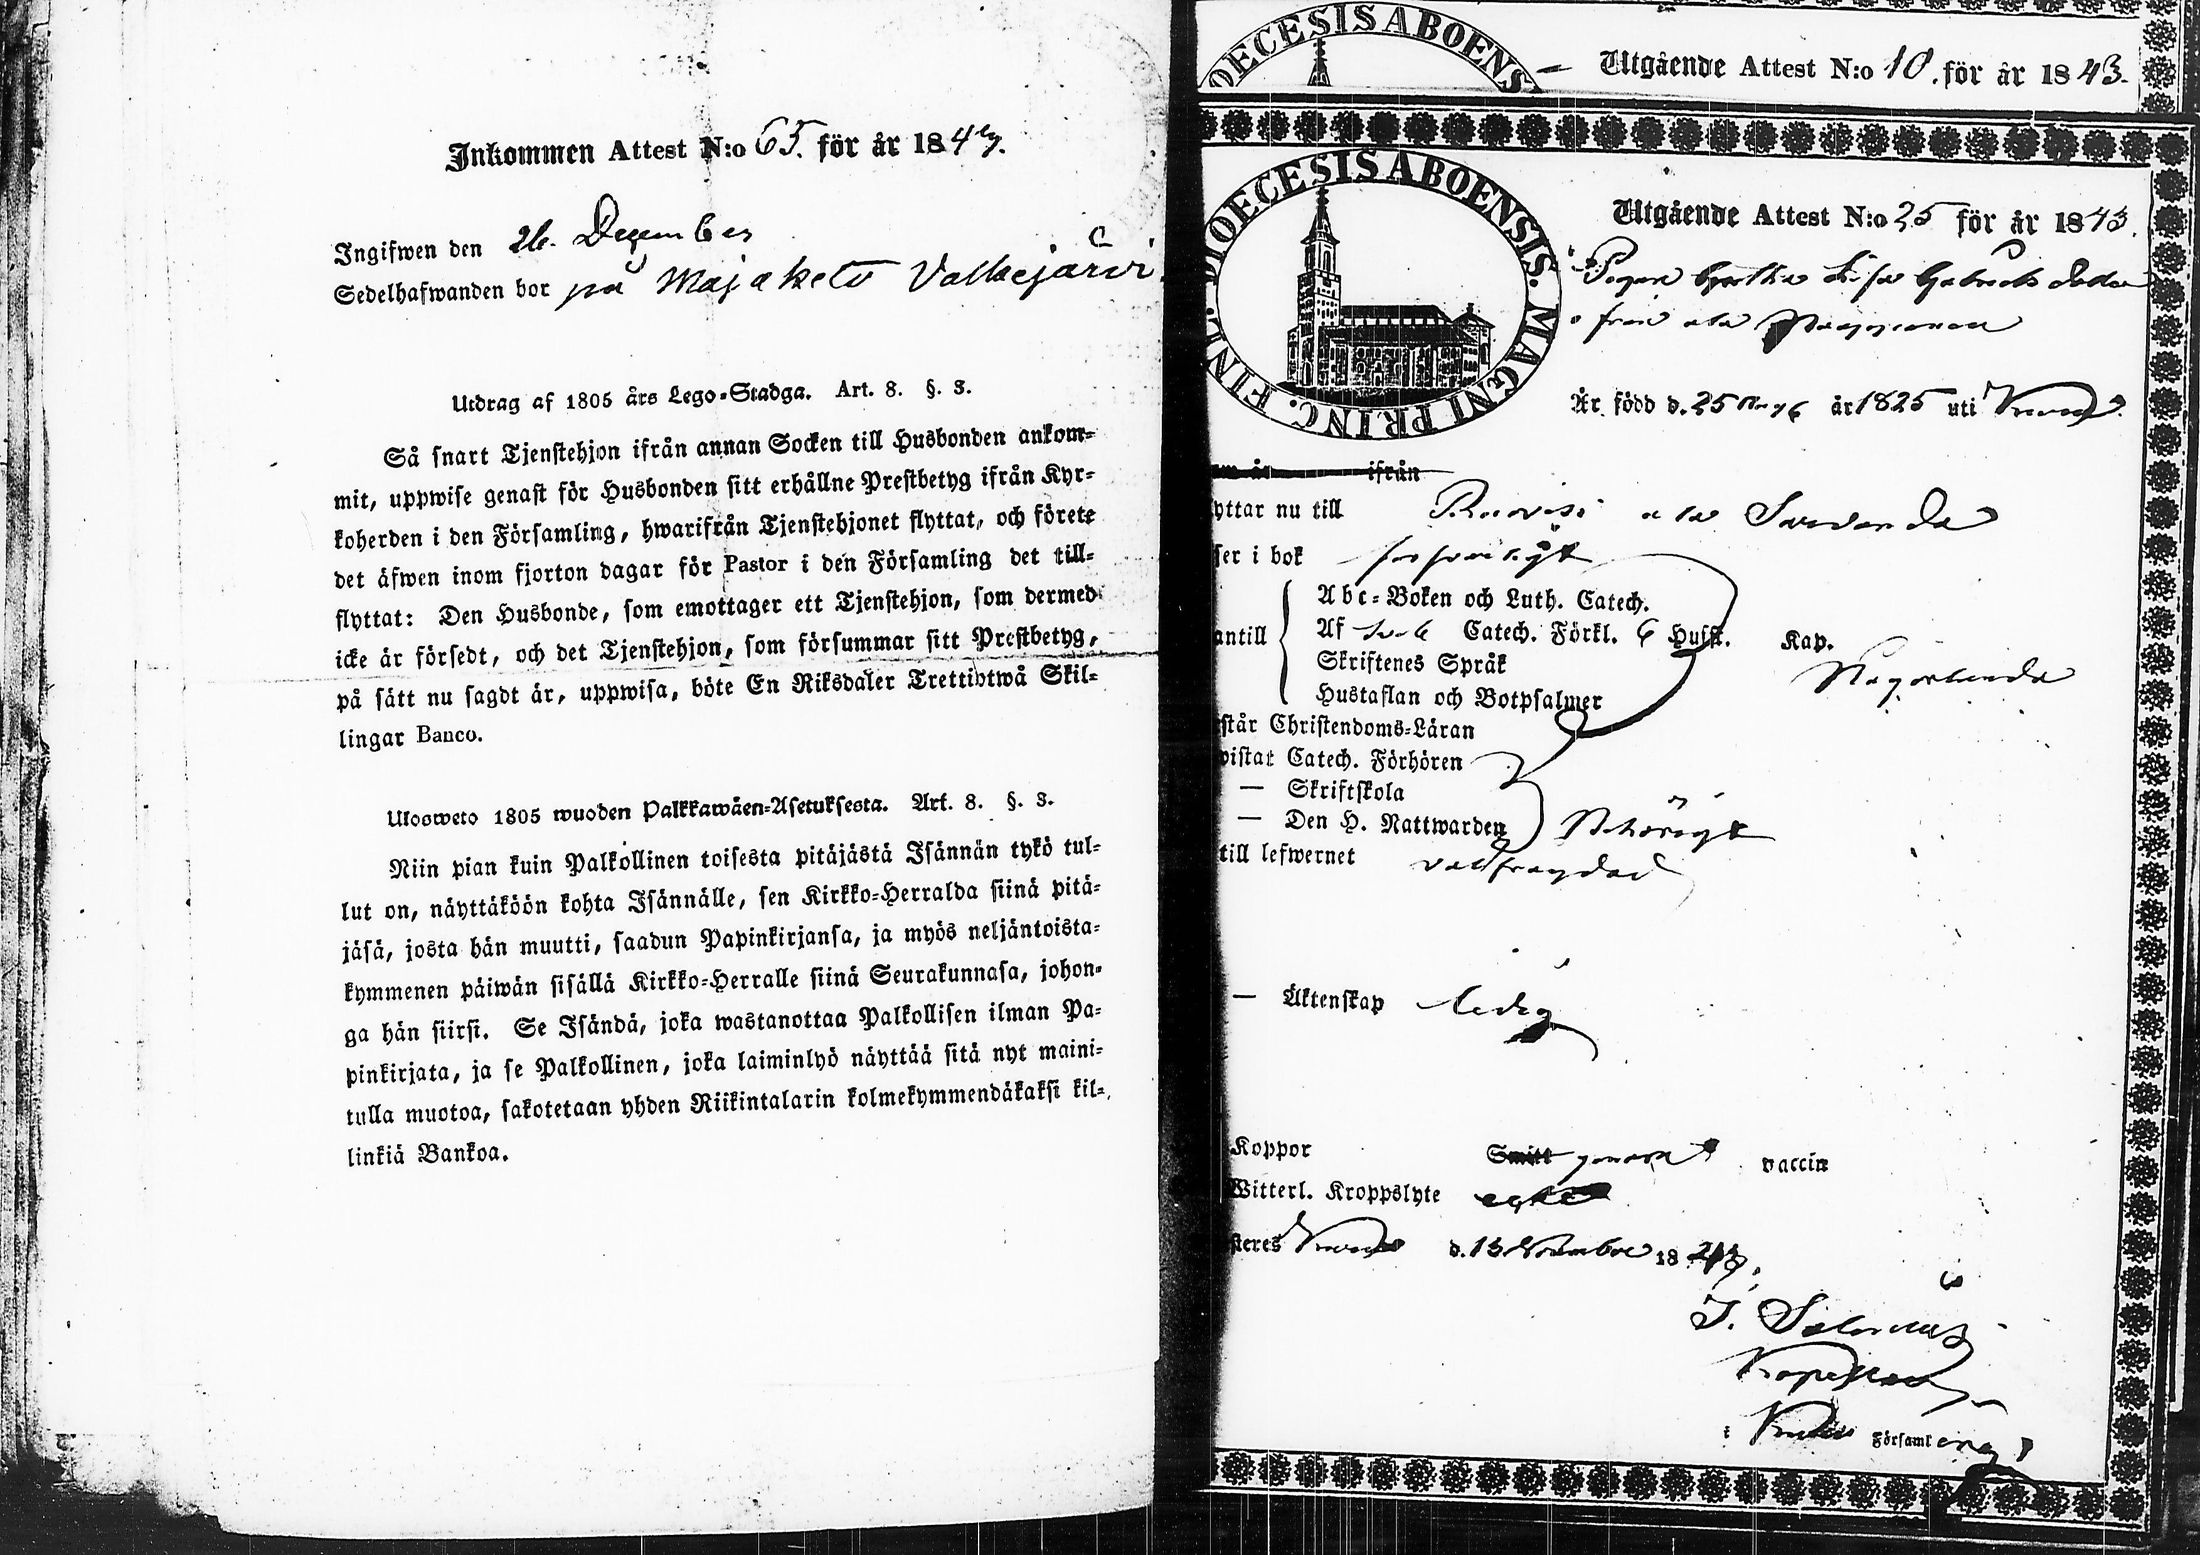 Inkommen Attest N:o 65. för år 184
Ingifwen den 26. December
Sedelhafwanden bor på Majaketo Valkejärvi
Utdrag af 1805 års Lego-Stadga. Art. 8. §. 3.
Så snart Tjenstehjon ifrån annan Socken till Husbonden ankom-
mit, uppwise genast för Husbonden sitt erhållne Prestbetyg ifrån Kyr-
koherden i den Församling, hwarifrån Tjenstehjonet flyttat, och förete
det äfwen inom fjorton dagar för Pastor i den Församling det till-
flyttat: Den Husbonde, som emottager ett Tjenstehjon, som dermed
icke är försedt, och det Tjenstehjon, som försummar sitt Prestbetyg,
på sätt nu sagdt är, uppwisa, böte En Riksdaler Trettiotwå Skil-
lingar Banco.
Ulosweto 1805 wuoden Palkkawäen-Asetuksesta. Art. 8. §. 3.
Niin pian kuin Palkollinen toisesta pitäjästä Isännän tykö tul-
lut on, näyttäköön kohta Isännälle, sen Kirkko-Herralda siinä pitä-
jäsä, josta hän muutti, saadun Papinkirjansa, ja myös neljäntoista-
kymmenen päiwän sisällä Kirkko-Herralle siinä Seurakunnasa, johon-
ga hän siirsi. Se Isändä, joka wastanottaa Palkollisen ilman Pa-
pinkirjata, ja se Palkollinen, joka laiminlyö näyttää sitä nyt maini-
tulla muotoa, sakotetaan yhden Riikintalarin kolmekymmendäkaksi kil-
linkiä Bankoa.
DIOECESIS ABOENS
Utgående Attest N:o 10. för år 1843.
DIOECESIS ABOENSIS. MAGNI PRINC. FINL.
Utgående Attest N:o 25 för år 1843.
Pigan Lisa Gabriels dotter
från
Är född d. 25 år 1825 uti
ifrån
yttar nu till Ruovesi
ser i bok försvarligt
antill
Abc-Boken och Luth. Catech.
Af Catech. Förkl. 6 Hufst. Kap.
Skriftenes Språk
Någorlunda
Hustaflan och Botpsalmer
står Christendoms-Läran
vistat Catech. Förhören
— Skriftskola
— Den H. Nattwarden Behörigt
till lefwernet välfrägdad
— Äktenskap ledig
Koppor Smitt genom vaccin
Witterl. Kroppslyte
steres d. 13 November 1843.
Kapellan
i Församling